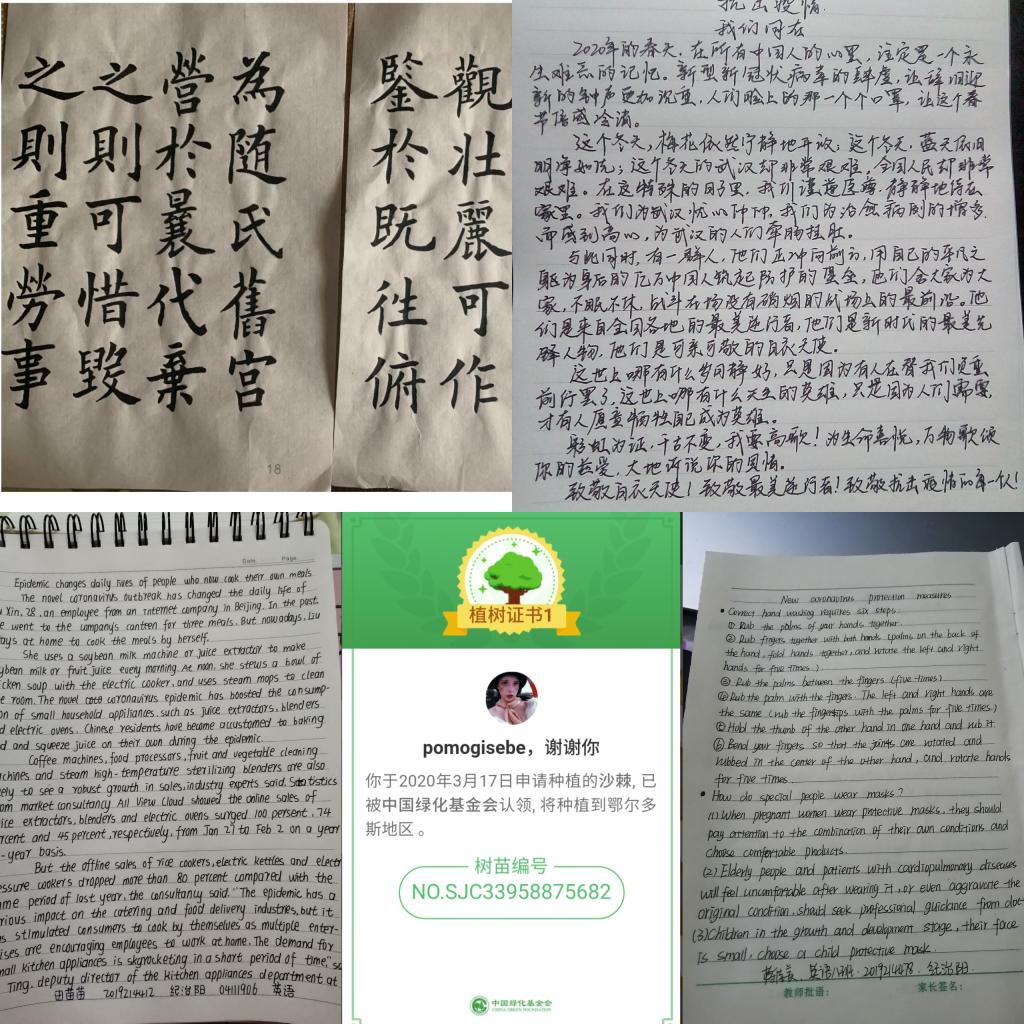 觀壯麗可作
鑒於既往俯
為隨氏舊宮
營於曩代棄
之則可惜毀
之則重勞事
18
抗击疫情
我们同在
2020年的春天,在所有中国人的心里,注定是一个永
生难忘的记忆。新型新冠状病毒的肆虐,让辞旧迎
新的钟声更加沉重,人们脸上的那一个个口罩,让这个春
节倍感冷清。
这个冬天,梅花依然宁静地开放;这个冬天,蓝天依旧
明净如洗;这个冬天的武汉却非常艰难,全国人民却非常
艰难。在这特殊的日子里,我们谨遵医嘱,静静地待在
家里。我们为武汉忧心忡忡,我们为治愈病例的增多
而感到高心,为武汉的人们牵肠挂肚。
与此同时,有一群人,他们正冲向前方,用自己的平凡之
躯为身后的亿万中国人筑起防护的堡垒,他们舍大家为大
家,不眠不休,战斗在场没有硝烟的战场上的最前沿。他
们是来自全国各地的最美逆行者,他们是新时代的最美先
锋人物,他们是可亲可敬的白衣天使。
这世上哪有什么岁月静好,只是因为有人在替我们负重
前行罢了,这世上哪有什么天生的英雄,只是因为人们需要,
才有人愿意牺牲自己成为英雄。
彩虹为证,千古不变,我要高歌!为生命喜悦,万物歌颂
你的慈爱,大地诉说你的恩情。
致敬白衣天使!致敬最美逆行者!致敬抗击疫情的每一个人!
Date Page
Epidemic changes daily lives of people who now cook their own meals
The novel coronavirus outbreak has changed the daily life of
Xin, 28, an employee from an internet company in Beijing. In the past
went to the company's canteen for three meals. But nowadays, Liu
ays at home to cook the meals by herself.
She uses a soybean milk machine or juice extractor to make
ybean milk or fruit juice every morning. At noon, she stews a bowl of
icken soup with the electric cooker, and uses steam mops to clean
e room. The novel coronavirus epidemic has boosted the consump-
on of small household appliances, such as juice extractors, blenders
d electric ovens. Chinese residents have become accustomed to baking
d and squeeze juice on their own during the epidemic.
Coffee machines, food processors, fruit and vegetable cleaning
chines and steam high-temperature sterilizing blenders are also
ely to see a robust growth in sales, industry experts said. Statistics
om market consultancy All View Cloud showed the online sales of
ice extractors, blenders and electric ovens surged 100 percent, 74
rcent and 45 percent, respectively, from Jan 27 to Feb 2 on a year
-year basis.
But the offline sales of rice cookers, electric kettles and electr
essure cookers dropped more than 80 percent compared with the
me period of last year, the consultancy said. "The epidemic has a
rious impact on the catering and food delivery industries, but it
s stimulated consumers to cook by themselves as multiple enter-
ises are encouraging employees to work at home. The demand for
mall kitchen appliances is skyrocketing in a short period of time," s
Ting, deputy director of the kitchen appliances department at
田苗苗 2019214412 纪治阳 04111906 英语
植树证书1
pomogisebe，谢谢你
你于2020年3月17日申请种植的沙棘, 已
被中国绿化基金会认领, 将种植到鄂尔多
斯地区 。
树苗编号
NO.SJC33958875682
中国绿化基金会
CHINA GREEN FOUNDATION
New coronavirus protection measures
• Correct hand washing requires six steps:
① Rub the palms of your hands together.
② Rub fingers together with both hands (palms on the back of
the hand, fold hands together, and rotate the left and right
hands for five times.)
③ Rub the palms between the fingers (five times)
④ Rub the palm with the fingers. The left and right hands are
the same (rub the fingertips with the palms for five times)
⑤ Hold the thumb of the other hand in one hand and rub it.
⑥ Bend your fingers so that the joints are rotated and
rubbed in the center of the other hand, and rotate hands
for five times.
• How do special people wear masks?
(1) When pregnant women wear protective masks, they should
pay attention to the combination of their own conditions and
choose comfortable products.
(2) Elderly people and patients with cardiopulmonary diseases
will feel uncomfortable after wearing it, or even aggravate the
original condition, should seek professional guidance from doct-
(3) Children in the growth and development stage, their face
is small, choose a child protective mask.
英语八班 2019214478 纪治阳
教师批语: 家长签名: